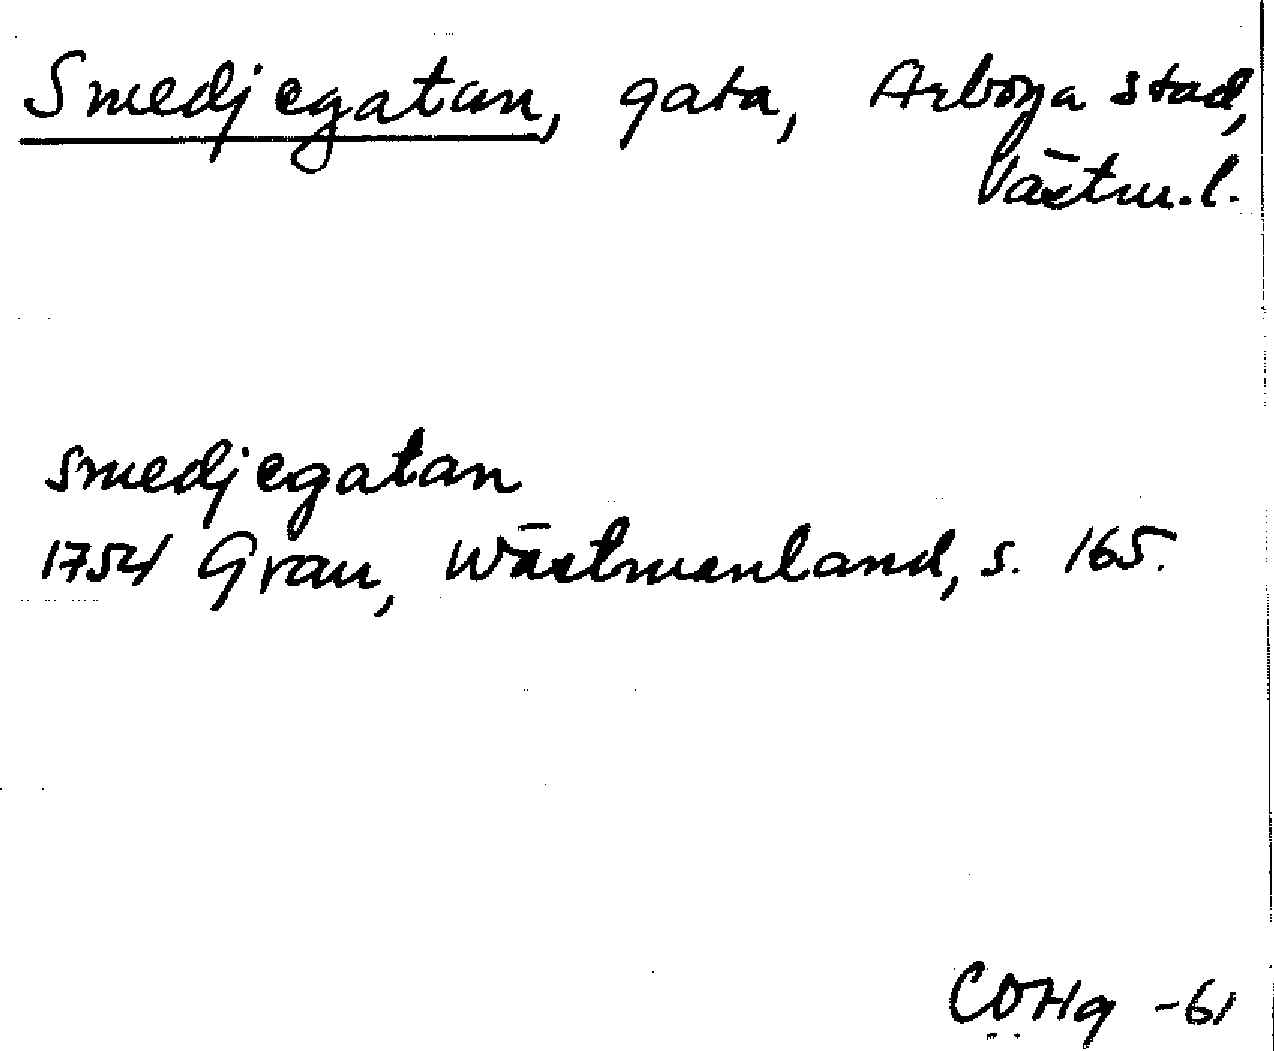 Smedjegatan, gata, Arboga stad,
Västm.l.
smedjegatan
1754 Grau, Wästmanland, s. 165.
COHg -61